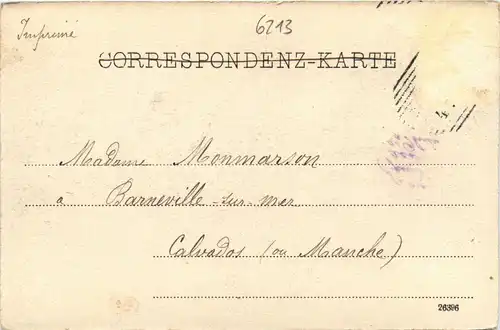 Imprimé
6213
CORRESPONDENZ-KARTE
Madame Monmarson
à Barneville-sur-mer
Calvados (ou Manche)
26396